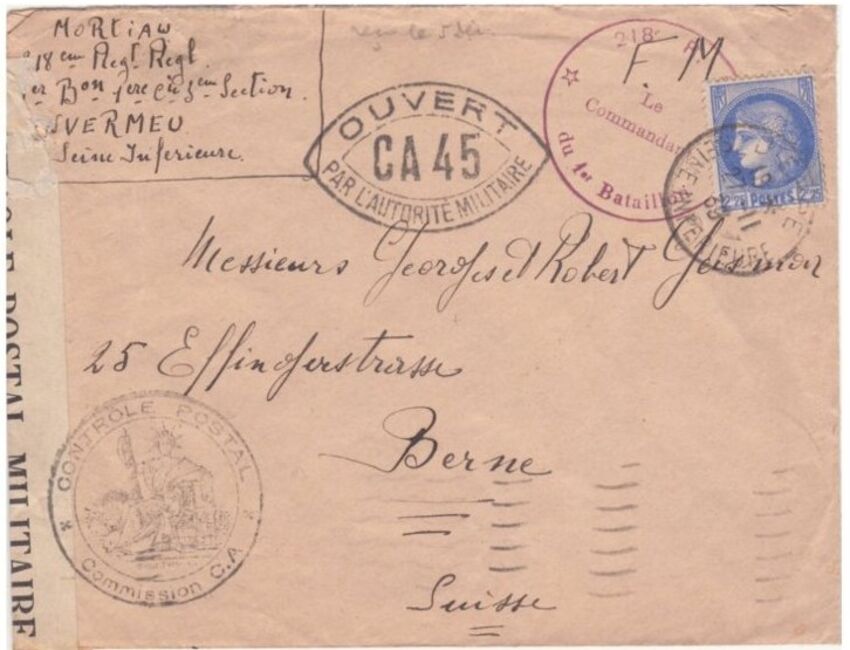 MORTIAU
218eme Regt Regl.
1er Bon 1ere Cie 3eme Section
Seine Inferieure.
reçu le 5 Déc.
OUVERT
CA 45
PAR L'AUTORITÉ MILITAIRE
218e R
Le
Commandant
du 1er Bataillon
F M
2,25 POSTES 2,25
Messieurs Georges et Robert
25 Effingerstrasse
Berne
Suisse
CONTRÔLE POSTAL
Commission C.A
CONTRÔLE POSTAL MILITAIRE